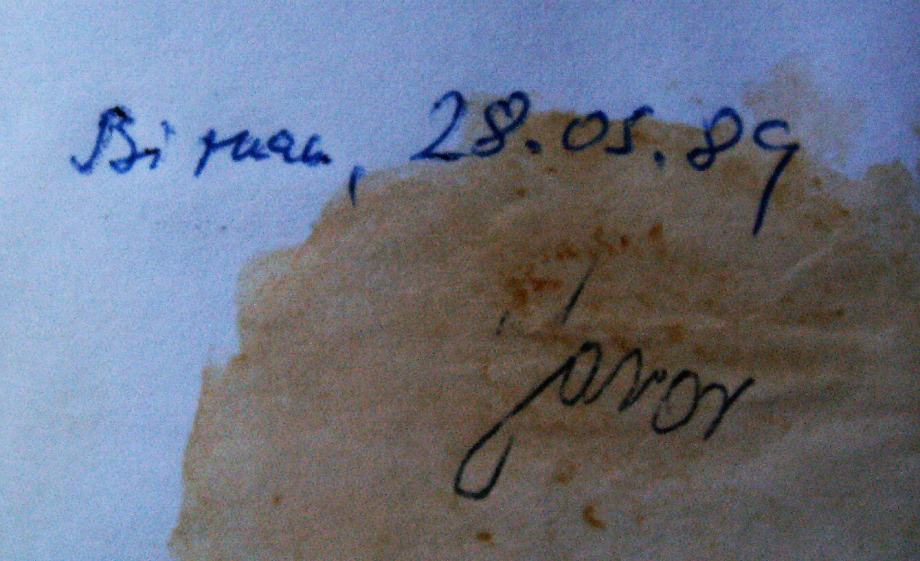 28.05.89
Javor